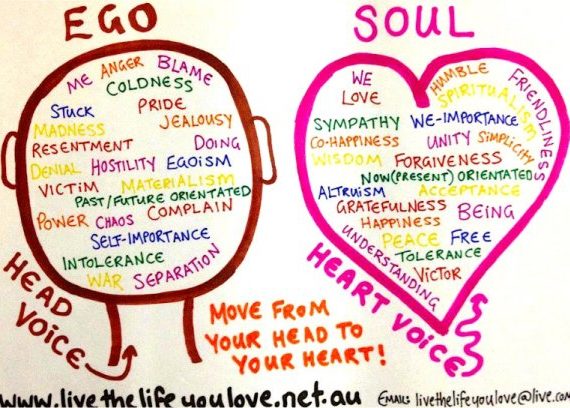 EGO
ME ANGER BLAME
COLDNESS
STUCK PRIDE
MADNESS JEALOUSY
RESENTMENT DOING
DENIAL HOSTILITY EGOISM
VICTIM MATERIALISM
PAST/FUTURE ORIENTATED
POWER CHAOS COMPLAIN
SELF-IMPORTANCE
INTOLERANCE
WAR SEPARATION
HEAD VOICE
SOUL
WE HUMBLE FRIENDLINESS
LOVE SPIRITUALISM
SYMPATHY WE-IMPORTANCE
CO-HAPPINESS UNITY SIMPLICITY
WISDOM FORGIVENESS
NOW(PRESENT) ORIENTATED
ALTRUISM ACCEPTANCE
GRATEFULNESS BEING
HAPPINESS
PEACE FREE
UNDERSTANDING TOLERANCE
VICTOR
HEART VOICE
MOVE FROM
YOUR HEAD TO
YOUR HEART!
www.livethelifeyoulove.net.au EMAIL: livethelifeyoulove@live.com